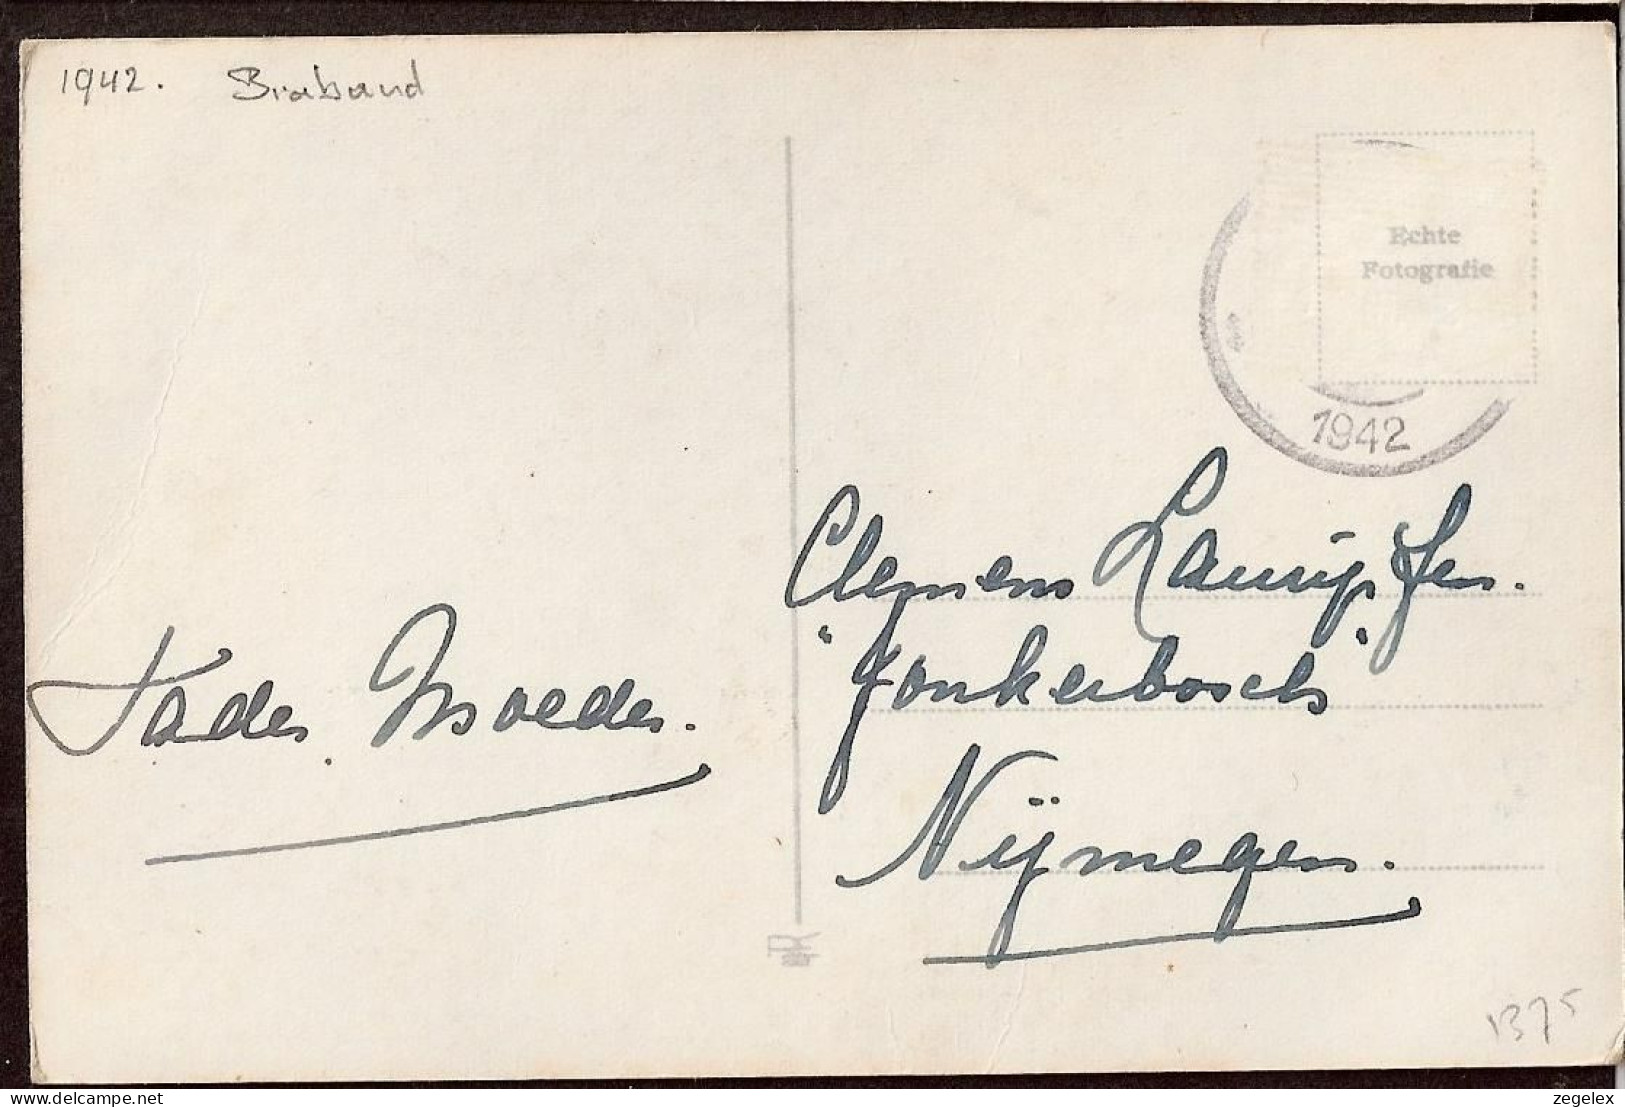 1942. Braband
Echte
Fotografie
1942
Clemens
"Jonkerbosch"
Vader, Moeder.
Nijmegen.
1375
delcampe.net
zegelex